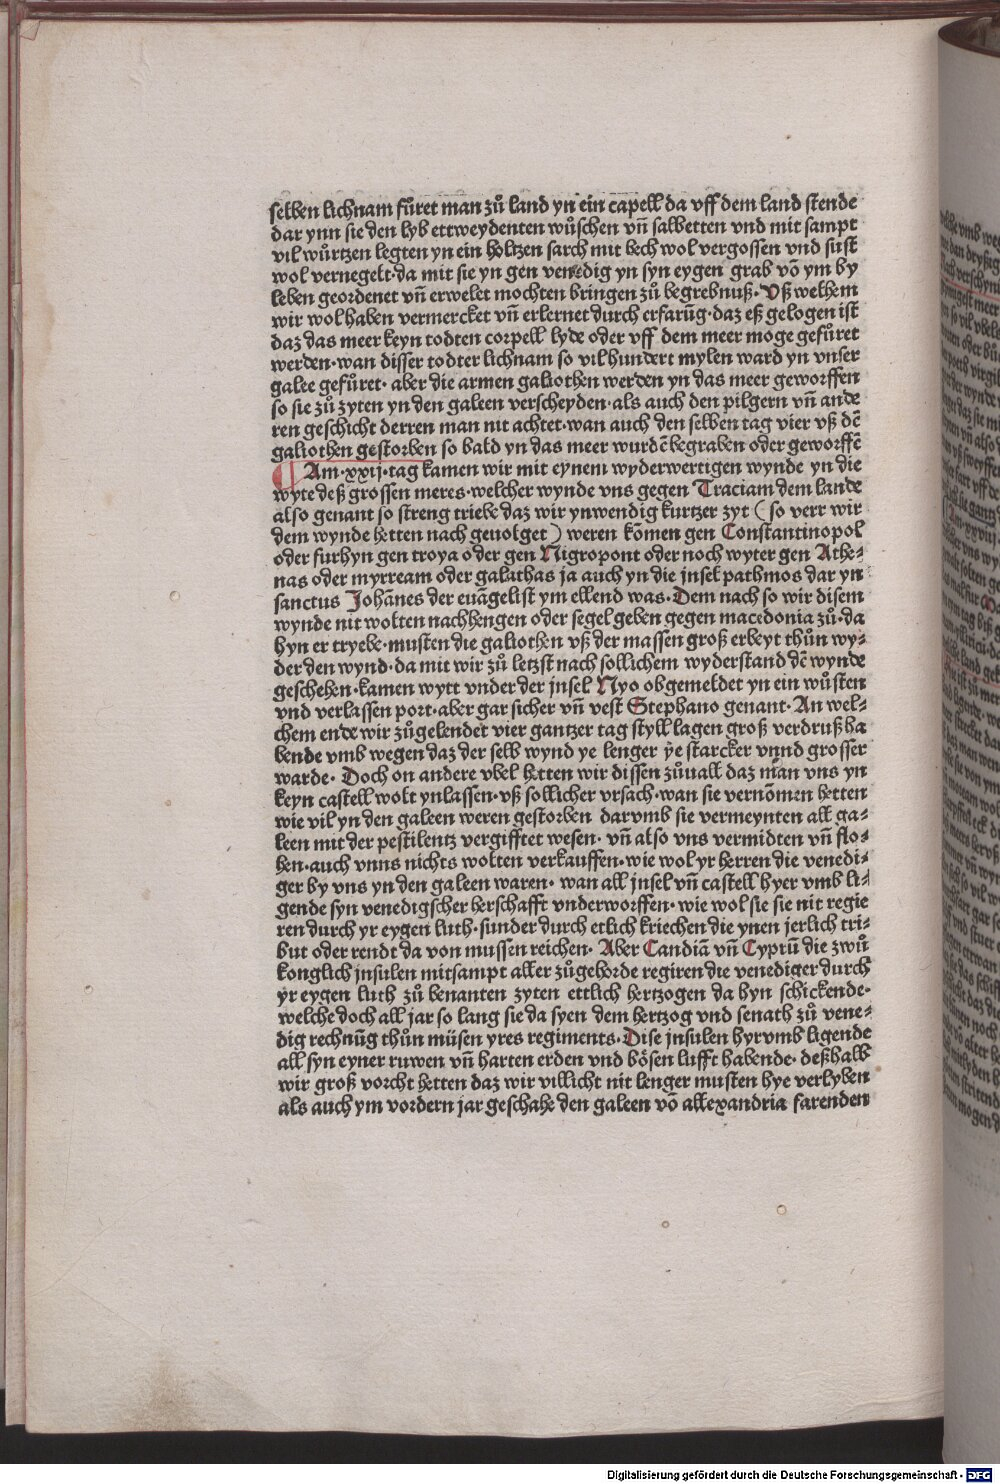 selben lichnam fuͤret man zuͦ land yn ein capell da vff dem land stende
dar ynn sie den lyb ettweydenten wuͤschen vñ salbetten vnd mit sampt
vil wuͤrtzen legten yn ein holtzen sarch mit bech wol vergossen vnd sust
wol vernegelt·da mit sie yn gen venedig yn syn eygen grab võ ym by
leben geordenet vñ erwelet mochten bringen zuͦ begrebnuß· Vß welhem
wir wol haben vermercket vñ erlernet durch erfarũg·daz eß gelogen ist
daz das meer keyn todten corpell lyde oder vff dem meer moge gefuͤret
werden·wan disser todter lichnam so vil hundert mylen ward yn vnser
galee gefuͤret· aber die armen galiothen werden yn das meer geworffen
so sie zuͦ zyten yn den galeen verscheyden·als auch den pilgern vñ ande
ren geschicht derren man nit achtet·wan auch den selben tag vier vß dẽ
galiothen gestorben so bald yn das meer wurdẽ begraben oder geworffẽ
¶ Am·xxij·tag kamen wir mit eynem wyderwertigen wynde yn die
wyte deß grossen meres·welcher wynde vns gegen Traciam dem lande
also genant so streng triebe daz wir ynwendig kurtzer zyt ( so verr wir
dem wynde hetten nach geuolget ) weren kõmen gen Constantinopol
oder furhyn gen troya oder gen Nigropont oder noch wyter gen Athe⸗
nas oder myrream oder galathas ja auch yn die jnsel pathmos dar yn
sanctus Johãnes der euãgelist ym ellend was· Dem nach so wir disem
wynde nit wolten nachhengen oder segel geben gegen macedonia zuͦ·da
hyn er tryebe·musten die galiothen vß der massen groß erbeyt thuͦn wy⸗
der den wynd·da mit wir zuͦ letzst nach sollichem wyderstand dẽ wynde
geschehen·kamen wytt vnder der jnsel Nyo obgemeldet yn ein wuͤsten
vnd verlassen port·aber gar sicher vñ vest Stephano genant· An wel⸗
chem ende wir zuͦgelendet vier gantzer tag styll lagen groß verdruß ha
bende vmb wegen daz der selb wynd ye lenger ye starcker vnnd grosser
warde· Doch on andere vbel hetten wir dissen zuͦuall daz man vns yn
keyn castell wolt ynlassen·vß sollicher vrsach·wan sie vernõmen hetten
wie vil yn den galeen weren gestorben darvmb sie vermeynten all ga⸗
leen mit der pestilentz vergifftet wesen· vñ also vns vermidten vñ flo⸗
hen·auch vnns nichts wolten verkauffen·wie wol yr herren die venedi⸗
ger by vns yn den galeen waren· wan all jnsel vñ castell hyer vmb li⸗
gende syn venedigscher herschafft vnderworffen·wie wol sie sie nit regie
ren durch yr eygen luth·sunder durch etlich kriechen die ynen jerlich tri⸗
but oder rendt da von mussen reichen· Aber Candiã vñ Cyprũ die zwuͦ
konglich jnsulen mitsampt aller zuͦgehorde regiren die venediger durch
yr eygen luth zuͦ benanten zyten ettlich hertzogen da hyn schickende·
welche doch all jar so lang sie da syen dem hertzog vnd senath zuͦ vene⸗
dig rechnũg thuͦn müsen yres regiments· Dise jnsulen hyrvmb ligende
all syn eyner ruwen vñ harten erden vnd boͤsen lufft habende· deßhalb
wir groß vorcht hetten daz wir villicht nit lenger musten hye verlyben
als auch ym vordern jar geschahe den galeen võ allexandria farenden
Digitalisierung gefördert durch die Deutsche Forschungsgemeinschaft - DFG